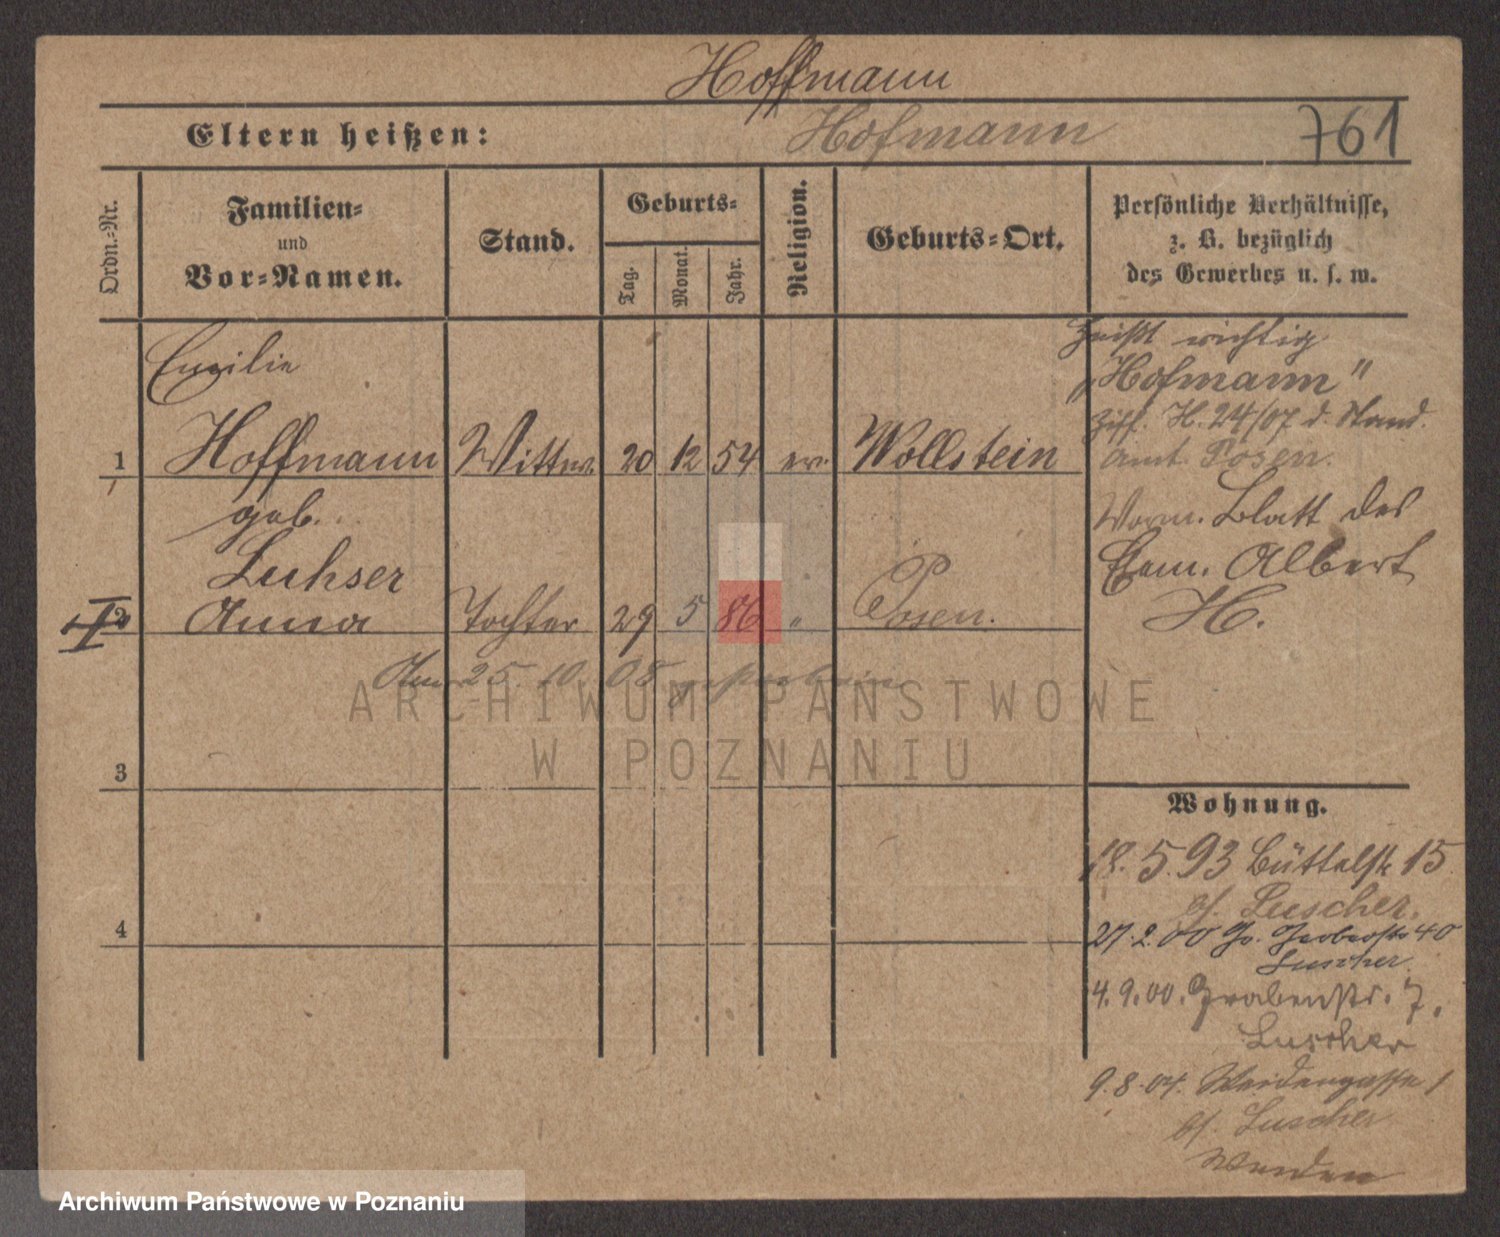 Hoffmann
Eltern heißen: Hofmann 761
Ordn.-Nr.
Familien-
und
Vor-Namen.
Stand.
Geburts-
Tag.
Monat.
Jahr.
Religion.
Geburts-Ort.
Persönliche Verhältnisse,
z. B. bezüglich
des Gewerbes u. s. w.
Emilie
1 Hoffmann Wittwe 20 12 54 ev. Wollstein
geb.
Luhser
2 Anna Tochter 29 5 86 " Posen.
Am 25.10.08 gestorben
3
4
heißt richtig
„Hofmann"
Ziff. H. 24/07 d. Stand.
amt Posen.
Vorm. Blatt des
Ehem. Albert
H.
Wohnung.
18.5.93 Büttelstr 15
b/. Luscher.
27.2.00 Gr. Gerberstr 40
Luscher
4.9.00. Grabenstr. 7.
Luscher
9.8.04. Weidengasse 1
b/. Luscher
Wenden
ARCHIWUM PAŃSTWOWE
W POZNANIU
Archiwum Państwowe w Poznaniu